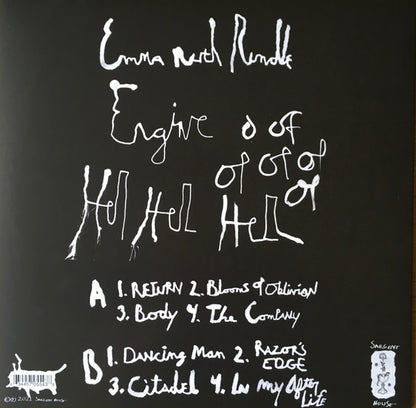 Emma Ruth Rundle
Engine of of
of of of
Hel Hel Hell of
A 1. RETURN 2. Blooms of Oblivion
3. Body 4. The Company
B 1. Dancing Man 2. RAZOR'S EDGE
3. Citadel 4. In my After LIFE
SARGENT
HOUSE
©℗ 2021 SARGENT HOUSE